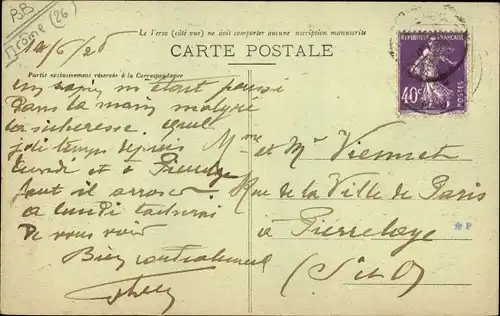 BB
Drôme (26)
Le Verso (côté vue) ne doit comporter aucune inscription manuscrite
CARTE POSTALE
Partie exclusivement réservée à la Correspondance
REPUBLIQUE FRANÇAISE
40c
POSTES
14/6/26
un m'était poussé
dans la main malgré
la sécheresse. quel
joli temps depuis
lundi et à Pierrelaye
faut il arroser
a lundi tacherai
de vous voir
Bien cordialement
Mme et Mr Viennet
Rue de la Ville de Paris
à Pierrelaye
(S et O)
*P